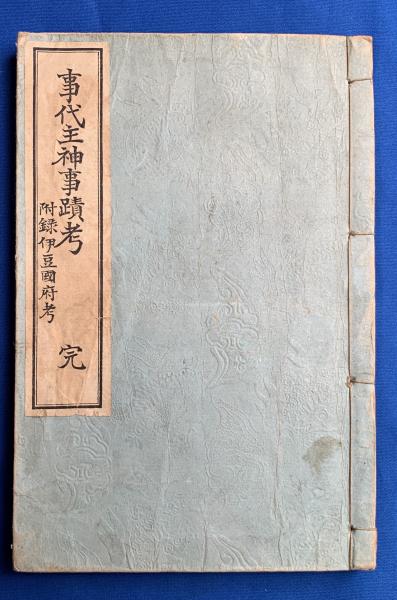 事代主神事蹟考
附録伊豆國府考
完